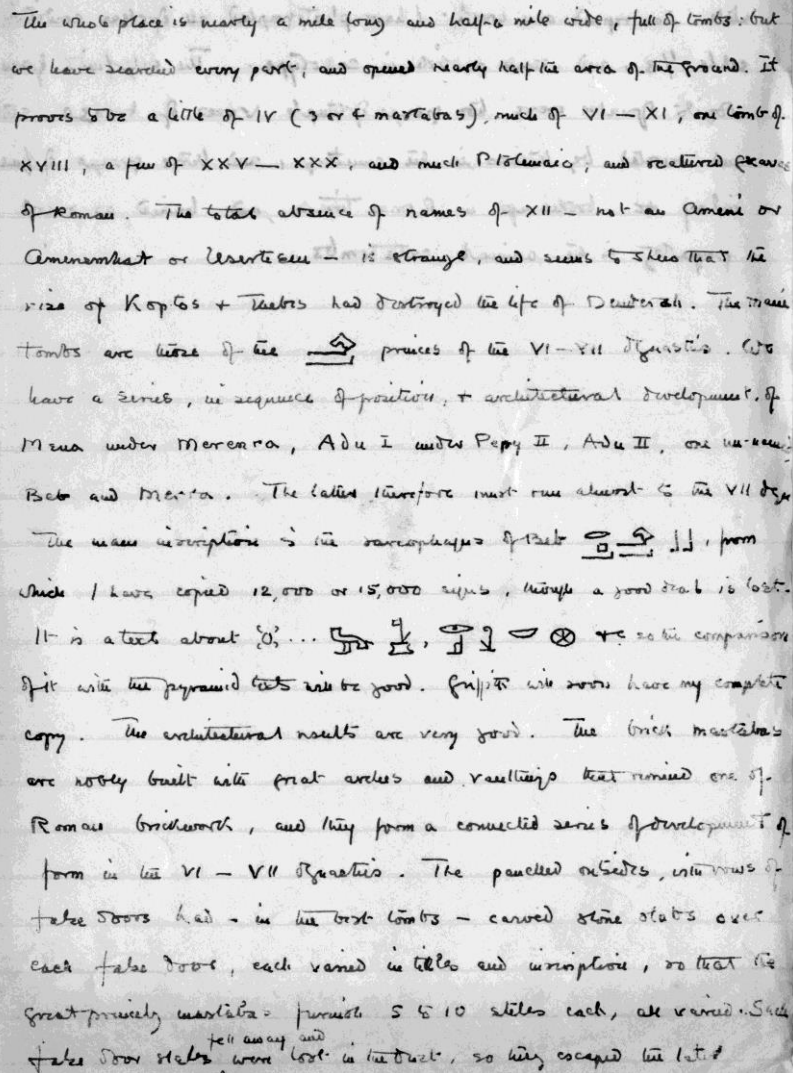 The whole place is nearly a mile long and half a mile wide, full of tombs: but
we have searched every part, and opened nearly half the area of the ground. It
proves to be a little of IV (3 or 4 mastabas), much of VI – XI, one tomb of
XVIII, a few of XXV – XXX, and much Ptolemaic, and scattered graves
of Roman. The total absence of names of XII – not an Ameni or
Amenemhat or Usertesen – is strange, and seems to shew that the
rise of Koptos + Thebes had destroyed the life of Denderah. The main
tombs are those of the princes of the VI – VII dynasties. We
have a series, in sequence of position, + architectural development, of
Mena under Merenra, Adu I under Pepy II, Adu II, one un-name
Beb and Merra. The latter therefore must run almost to the VII dyn
The main inscription is the sarcophagus of Beb , from
which I have copied 12,000 or 15,000 signs, though a good deal is lost.
It is a text about ... , &c so the comparison
of it with the pyramid texts will be good. Griffith will soon have my complete
copy. The architectural results are very good. The brick mastabas
are nobly built with great arches and vaultings that remind one of
Roman brickwork, and they form a connected series of development of
form in the VI – VII dynasties. The panelled outsides, with rows of
fake doors had – in the best tombs – carved stone slabs over
each fake door, each varied in titles and inscription, so that the
great princely mastabas furnish 5 to 10 steles each, all varied. Such
fake door steles fell away and were lost in the dust, so they escaped the later